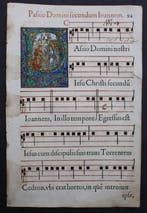 Passio Domini secundum Ioannem. 94
Assio Domini nostri
Iesu Christi secundũ
Ioannem, In illo tempore, Egressus est
Iesus cum discipulis suis trans Torrentem
Cedron, vbi erat hortus, in quẽ introiuit
ipse,